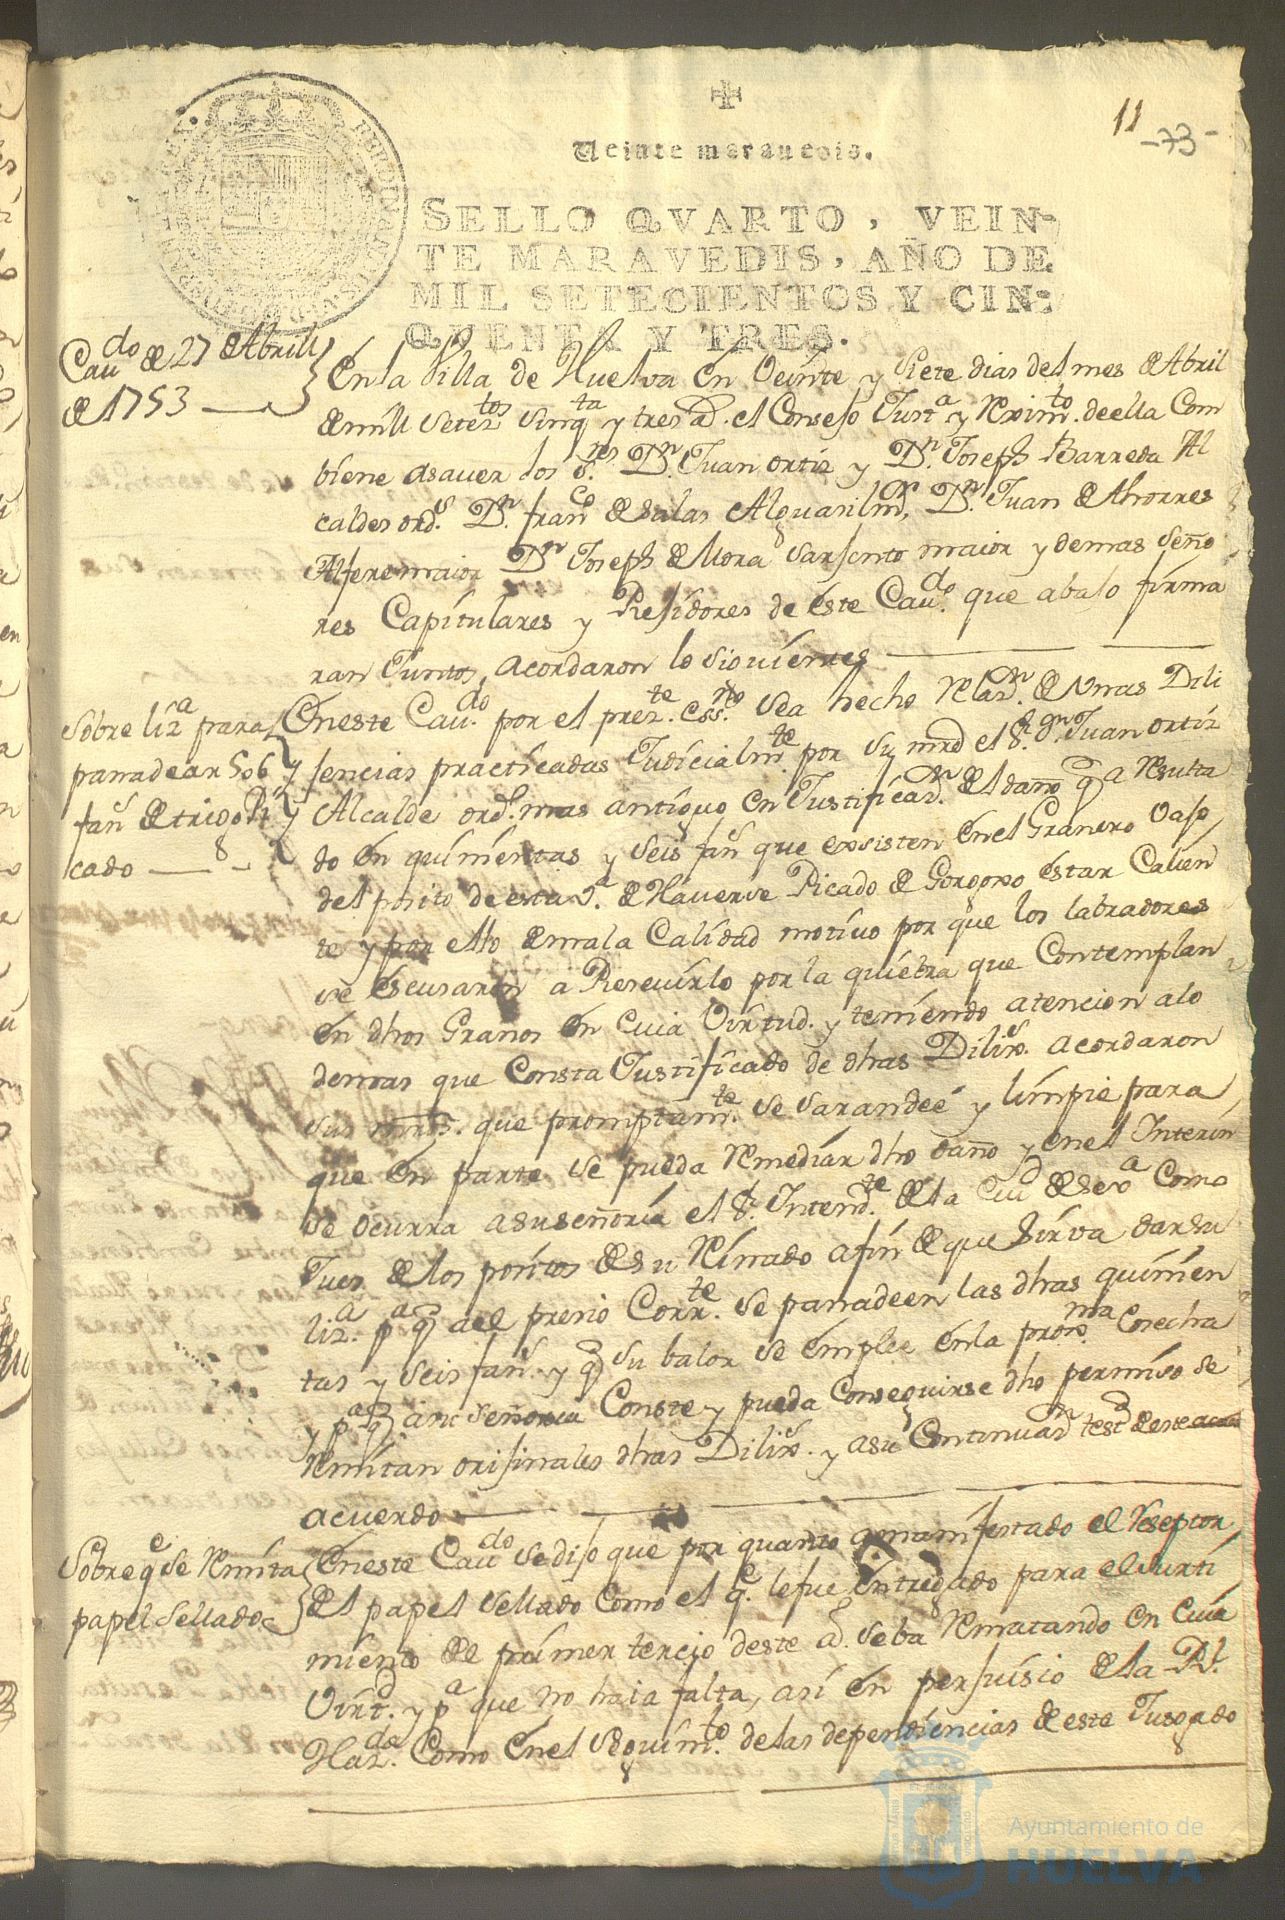 11
-73-
Veinte maravedis.
SELLO QVARTO, VEIN-
TE MARAVEDIS, AÑO DE
MIL SETECIENTOS Y CIN-
QUENTA Y TRES.
Cau.do de 27 de Abrill
de 1753
En la Villa de Huelva en Veinte y Siete dias del mes de Abril
de mill Setez.tos Sinq.ta y tres a.s el Consejo Just.a y Reximi.to de ella Com
biene asaver los S.res D.n Juan ortiz y D.n Joseph Barreda Al
caldes ord.s D.n fran.co de Salas Alguasil m.or, D.n Juan de Thorres
Alferemaior D.n Joseph de Mora Sarjento maior y demas Seño
res Capitulares y Residores de éste Cau.do que abajo firma
ran Juntos, acordaron lo Siguientes
Sobre liz.a para
panadear 506
fan.s de trigo Pi
cado
En este Cau.do por el prez.te ess.no Sea hecho Relaz.n de Unas Dili
sencias practicadas Judicialm.te por Su mrd el S.r D.n Juan ortiz
Alcalde ord.o mas antiguo en Justificaz.n del daño q.e a Resulta
do en quinientas y Seis fan.s que exsisten en el Granero Vajo
del posito de esta V.a de Haverse Picado de Gorgoxo éstar Calien
te y por ello de mala Calidad motivo por que los labradores
se éscusaron a Resevirlo por la quiebra que Contemplan
en dhos Granos en Cuia Virtud. y teniendo atencion alo
demas que Consta Justificado de dhas Dilix.s acordaron
Sus mrds. que promptam.te se Sarandeé y limpie para
que en parte se pueda Remediar dho daño y en el Interin
se ocurra a su señoria el S.r Intend.te de la Ciu.d de Sev.a Como
Juez de los positos de Su Reinado a fin de que Sirva dar Su
liz.a p.a q.e a el presio Corr.te Se panadeen las dhas quinien
tas y Seis fan.s y q.e Su balor Se émplee en la prox.ma Cosecha
y p.a q.e a su Señoria Conste y pueda Conseguirse dho permiso Se
Remitan orijinales dhas Dilix.s y a Su Continuaz.n test.o de este
acuerdo
Sobre q.e Se Remita
papel Sellado
En este Cau.do Se dijo que por quanto a manifestado el Reseptor
del papel Sellado Como el q.e le fue Entregado para el Surti
miento de el primer tercio deste a.o Se ba Rematando en Cuia
Virt.d y p.a que no haia falta, así en perjuisio de la R.l
Haz.da Como en el Seguim.to de las dependiencias de este Jusgado
Ayuntamiento de
HUELVA